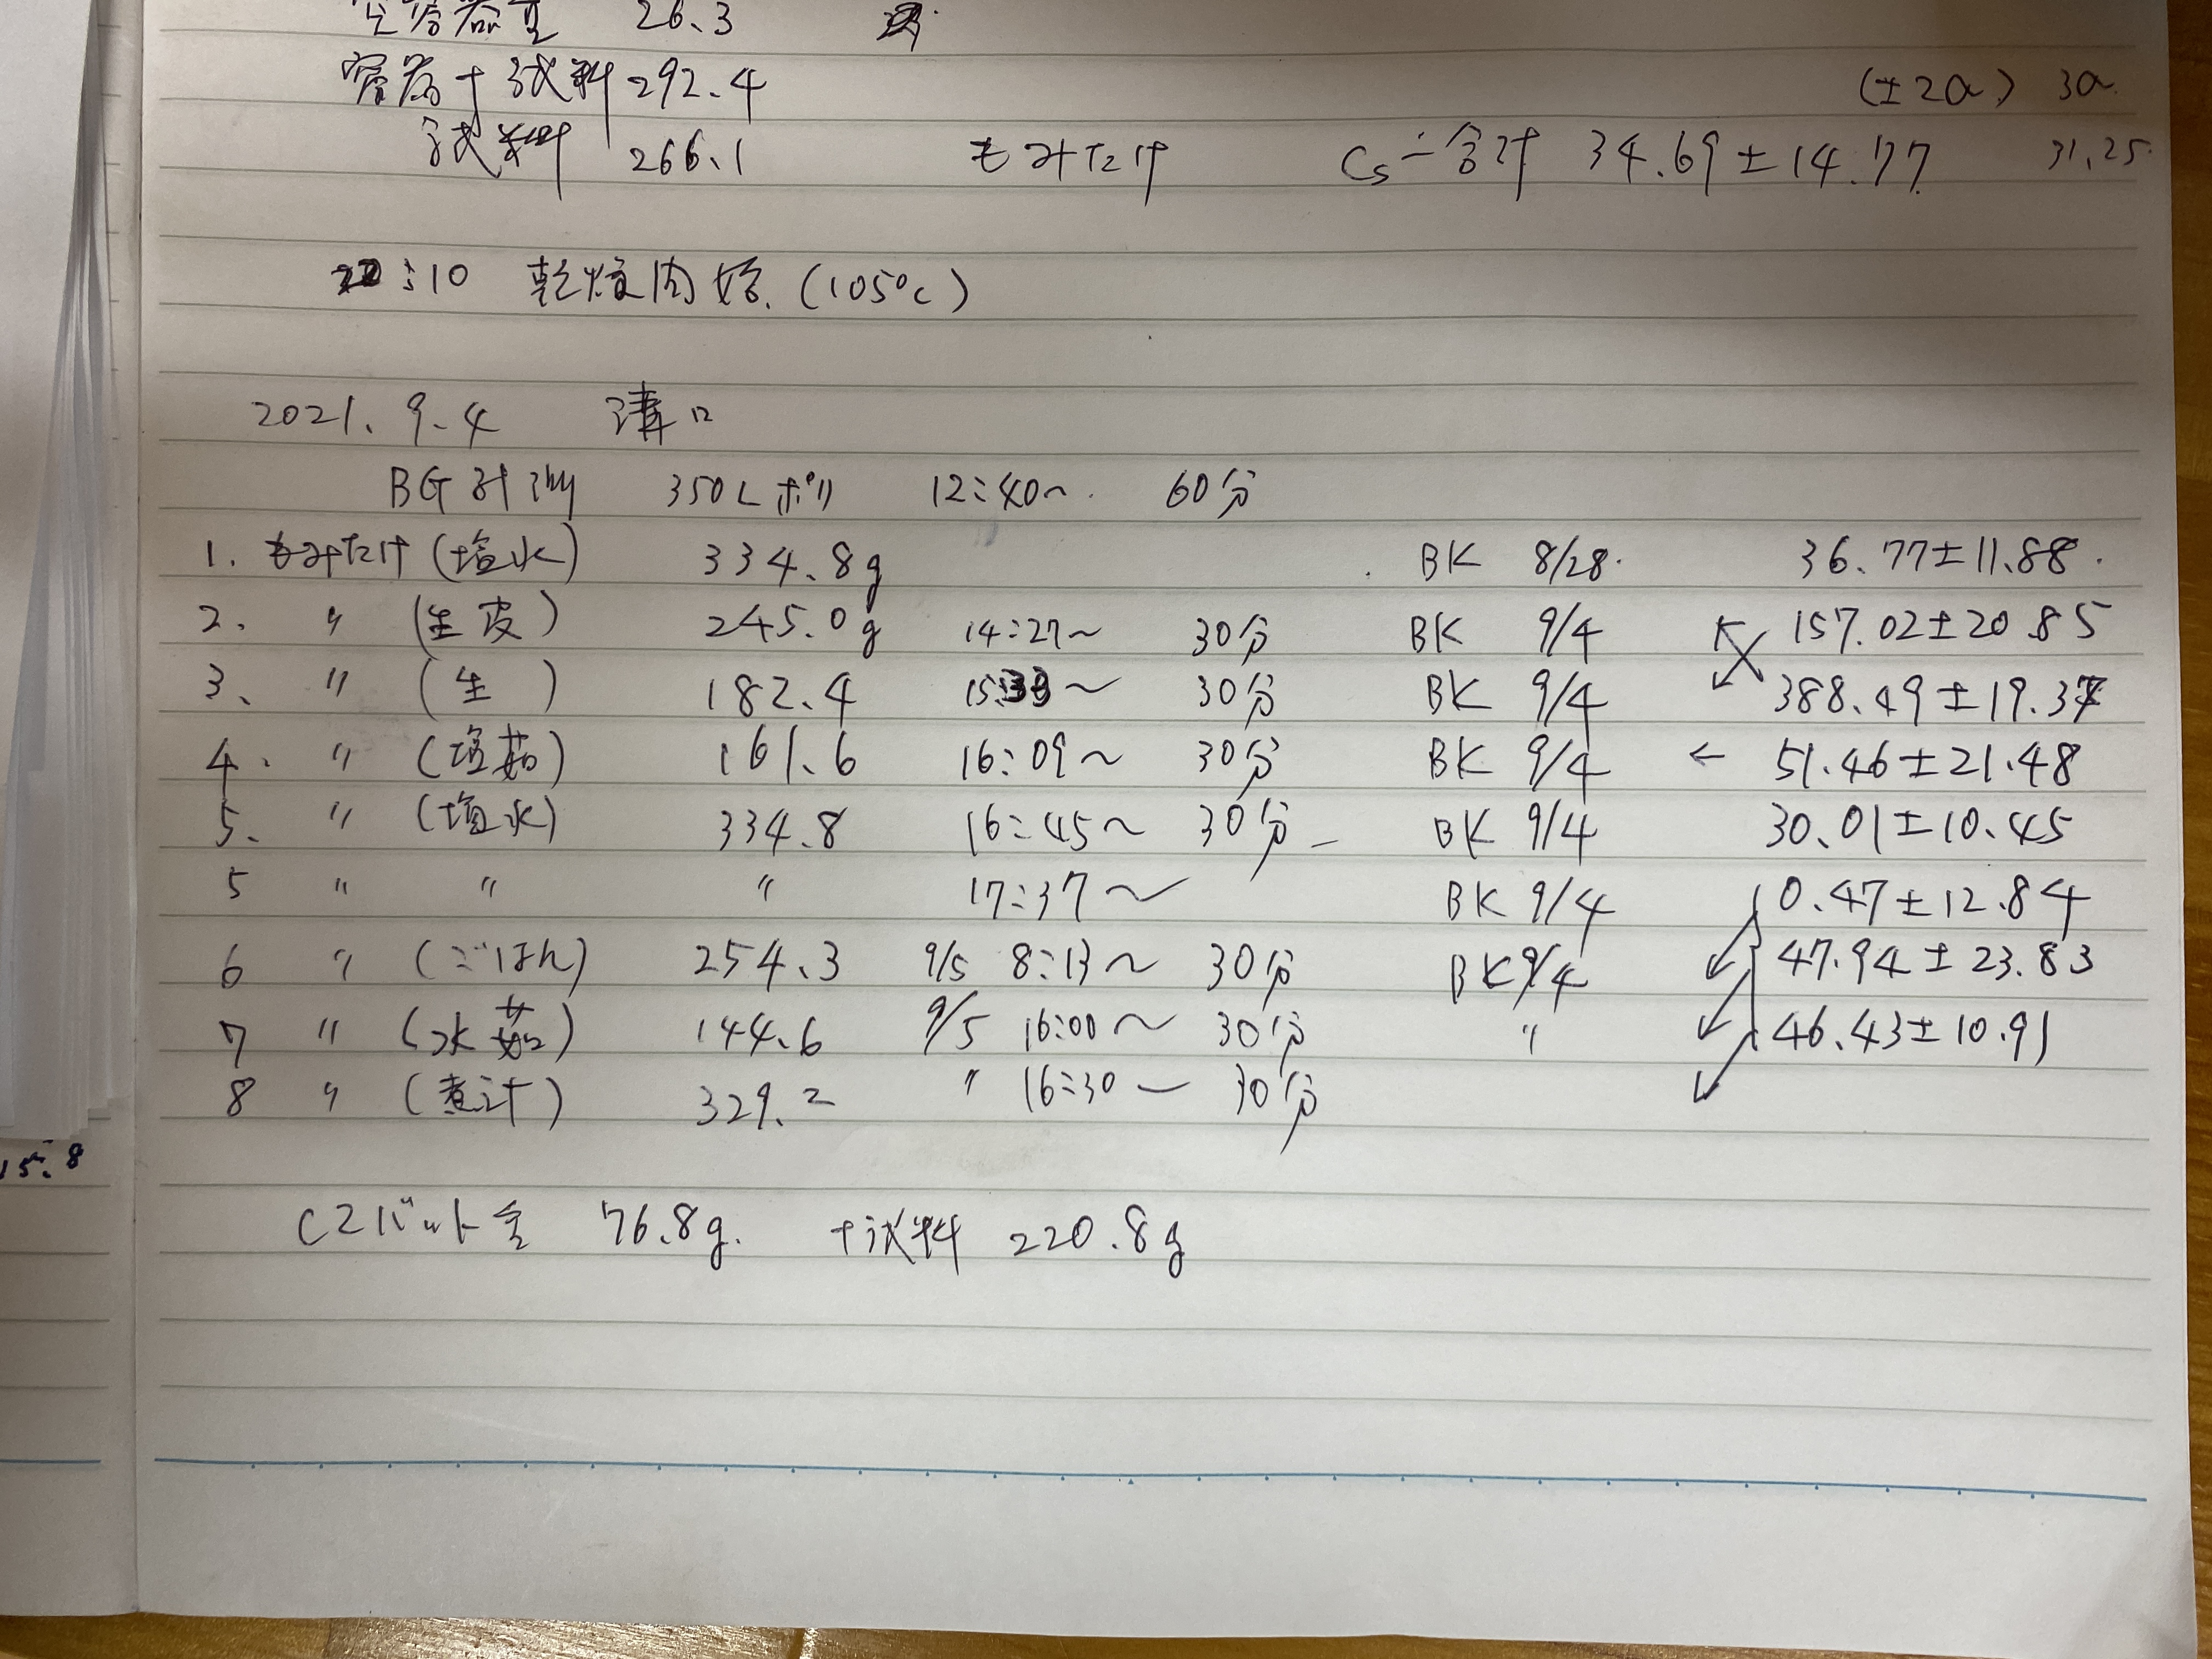 空容器重 26.3
容器+試料 292.4 (±2σ) 3σ
試料 266.1 もみたけ Cs-合計 34.69±14.77 31.25
:10 乾燥開始.(105℃)
2021.9.4 溝口
BG計測 350Lポリ 12:40~. 60分
1. もみたけ(塩水) 334.8g BK 8/28. 36.77±11.88.
2. 〃 (生皮) 245.0g 14:27~ 30分 BK 9/4 157.02±20.85
3. 〃 (生) 182.4 15: ~ 30分 BK 9/4 388.49±19.37
4. 〃 (塩茹) 161.6 16:09~ 30分 BK 9/4 ← 51.46±21.48
5. 〃 (塩水) 334.8 16:45~ 30分 BK 9/4 30.01±10.45
5 〃 〃 〃 17:37~ BK 9/4 10.47±12.84
6 〃 (ごはん) 254.3 9/5 8:13~ 30分 BK 9/4 47.94±23.83
7 〃 (水茹) 144.6 9/5 16:00~ 30分 〃 46.43±10.91
8 〃 (煮汁) 329.2 〃 16:30~ 30分
15.8
C2バット全 76.8g. +試料 220.8g